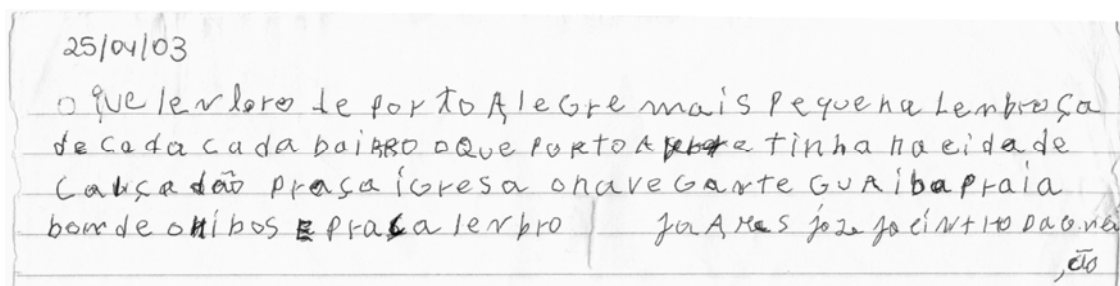 25/04/03
o que lenbro de porto Alegre mais pequena Lenbroça
de cada cada bairro o Que porto A e tinha na cidade
Causadão praça igresa o navegante GuAiba praia
bonde onibos E praça lenbro joze jocintHo Daconcei
ção